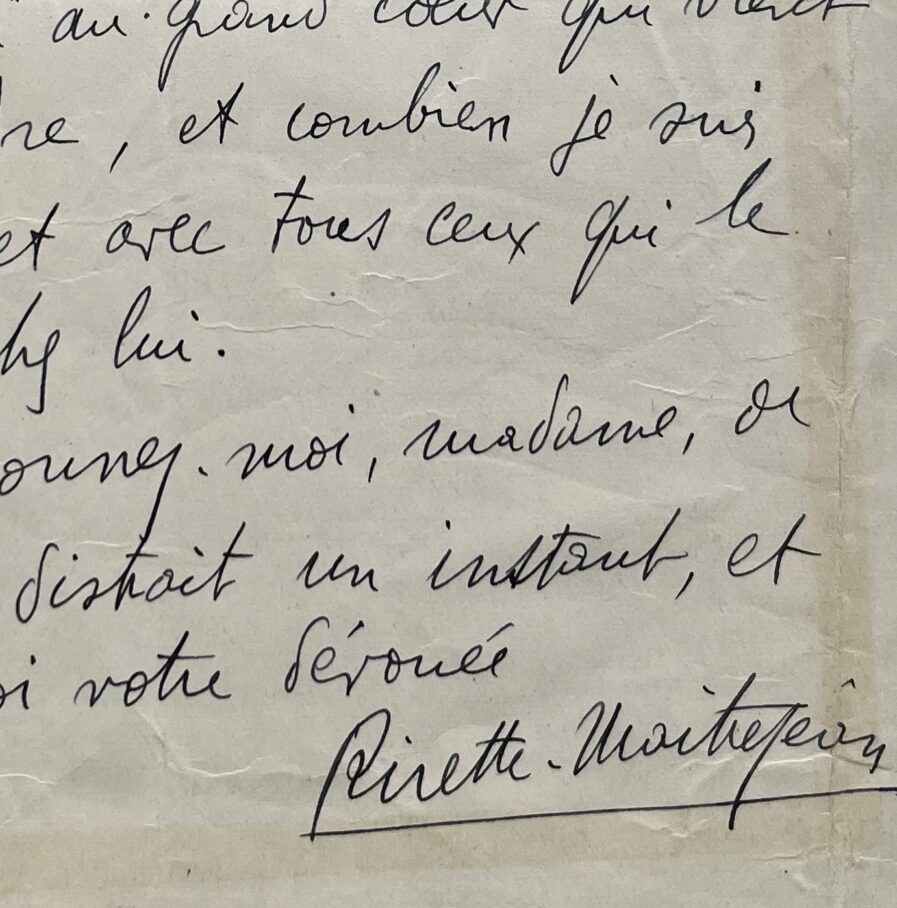 au grand cœur qui vient
re, et combien je suis
et avec tous ceux qui le
chez lui.
onnez-moi, madame, de
distrait un instant, et
oi votre dévouée
Rirette-Maitrejean